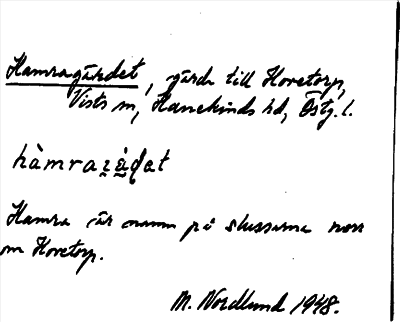 Hamragärdet, gärde till Hovetorp,
Vists sn, Hanekinds hd, Östg. l.
hàmraʐä̀ɖat
Hamra är namn på slussarna norr
om Hovetorp.
M. Nordlund 1948.